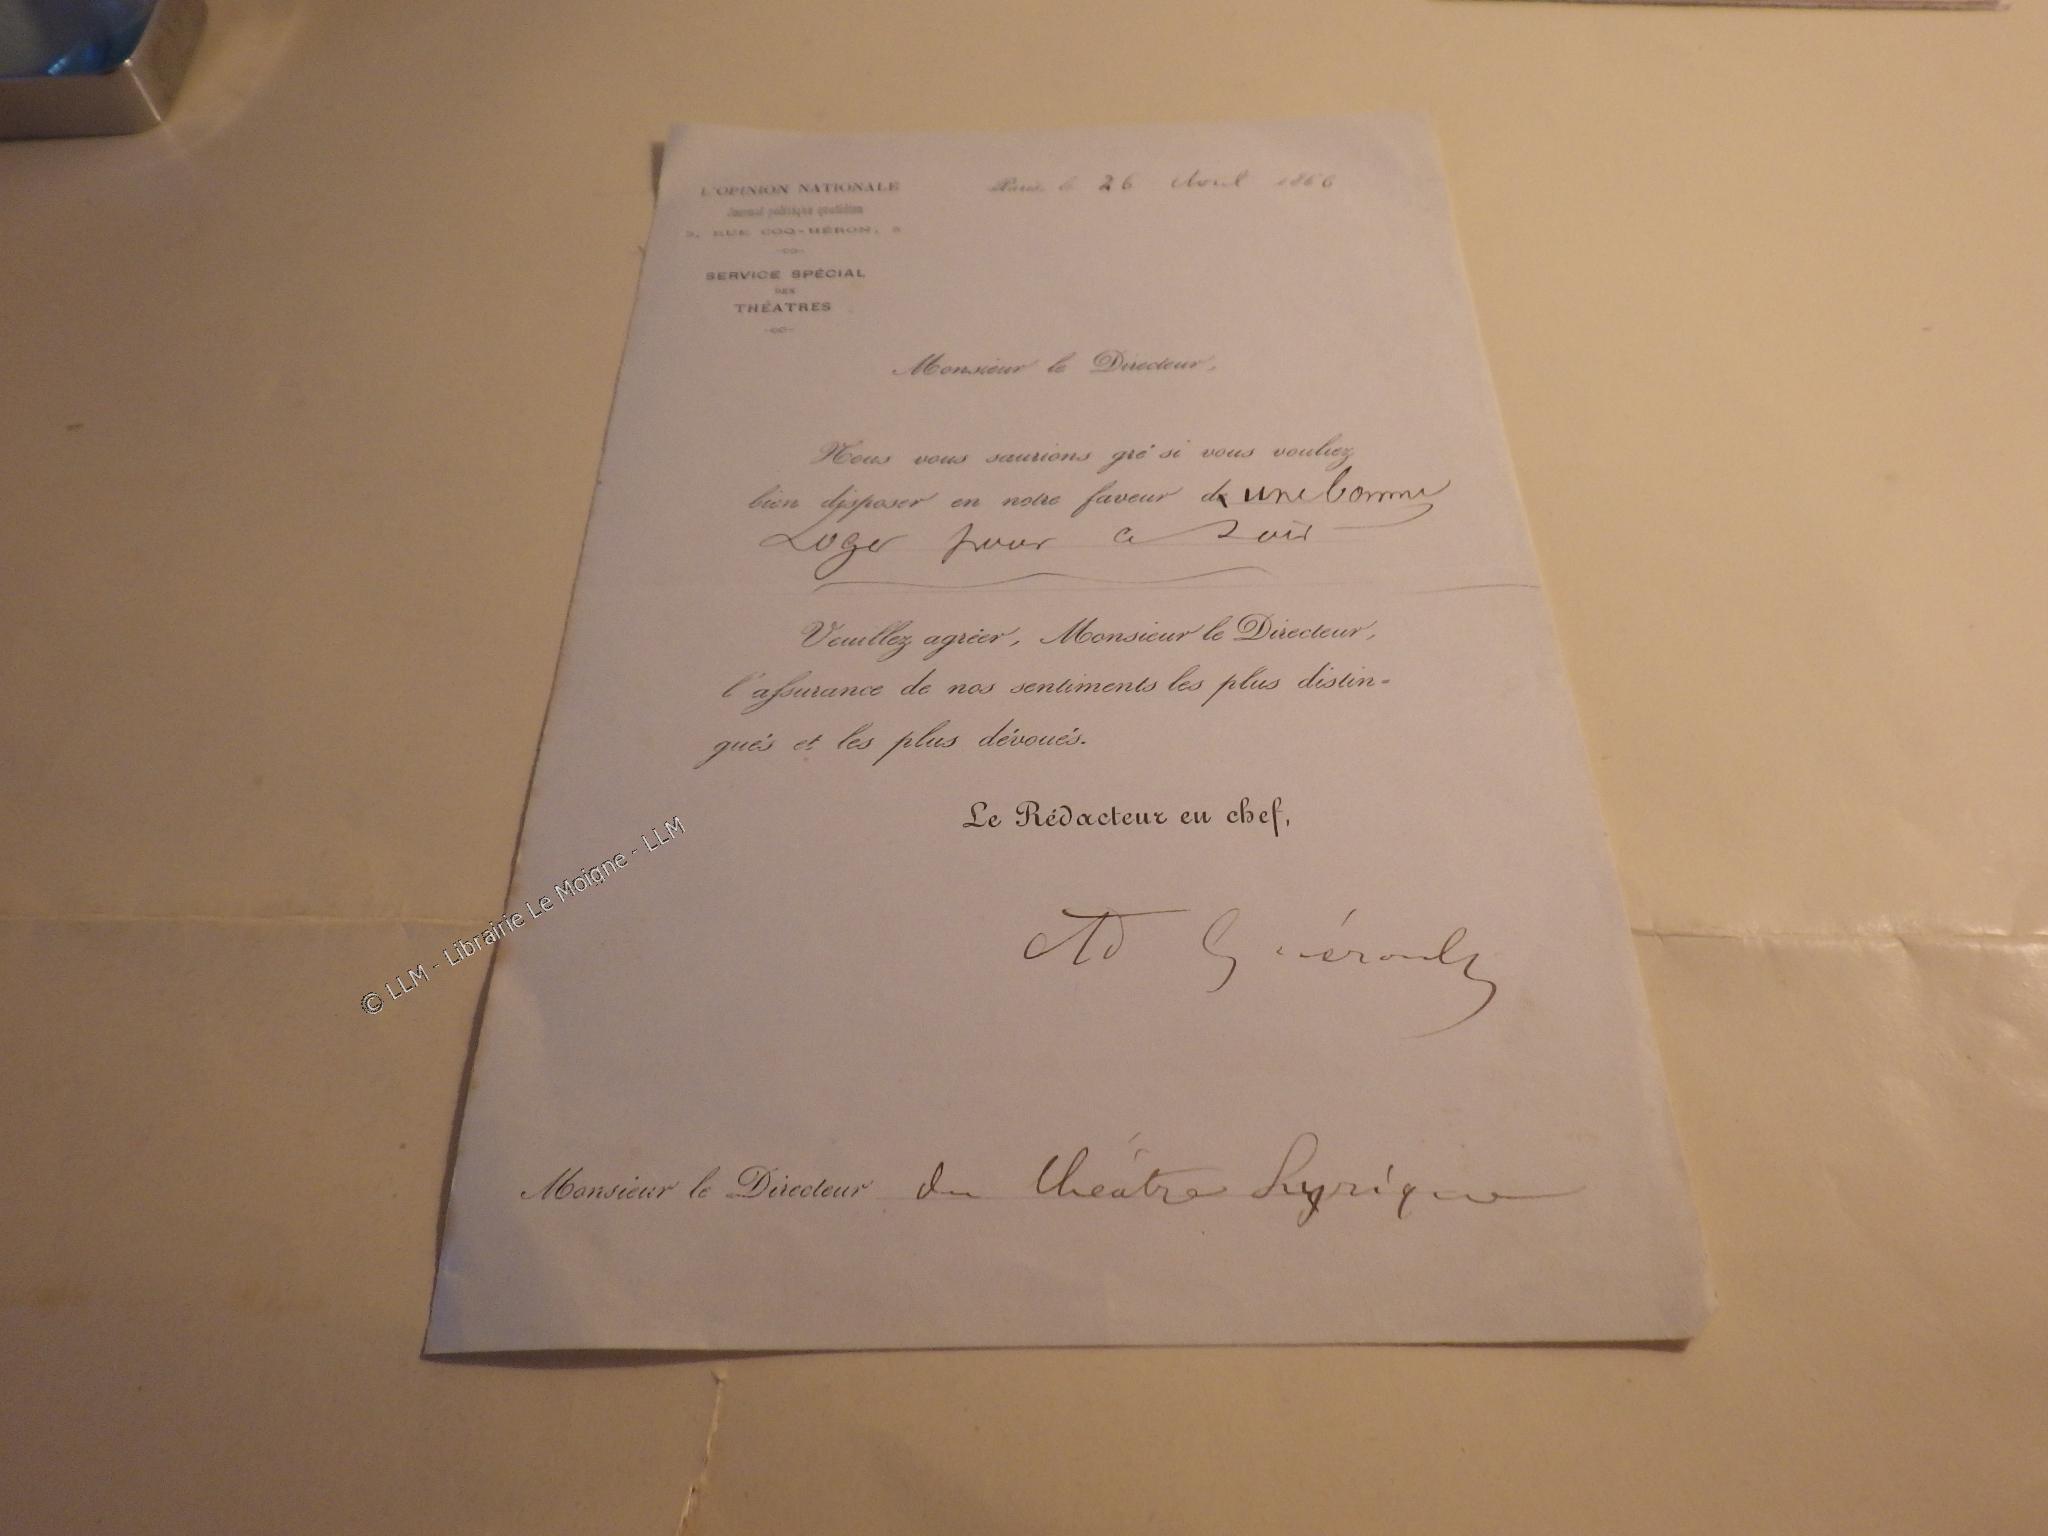 L'OPINION NATIONALE
Journal politique quotidien
5, RUE COQ-HÉRON, 5
SERVICE SPÉCIAL
DES
THÉATRES
Paris, le 26 Avril 1866
Monsieur le Directeur,
Nous vous saurions gré si vous vouliez
bien disposer en notre faveur de une bonne
Loge pour ce soir
Veuillez agréer, Monsieur le Directeur,
l'assurance de nos sentiments les plus distin-
gués et les plus dévoués.
Le Rédacteur en chef,
Ad Guéroult
Monsieur le Directeur du théâtre Lyrique
© LLM - Librairie Le Moigne - LLM